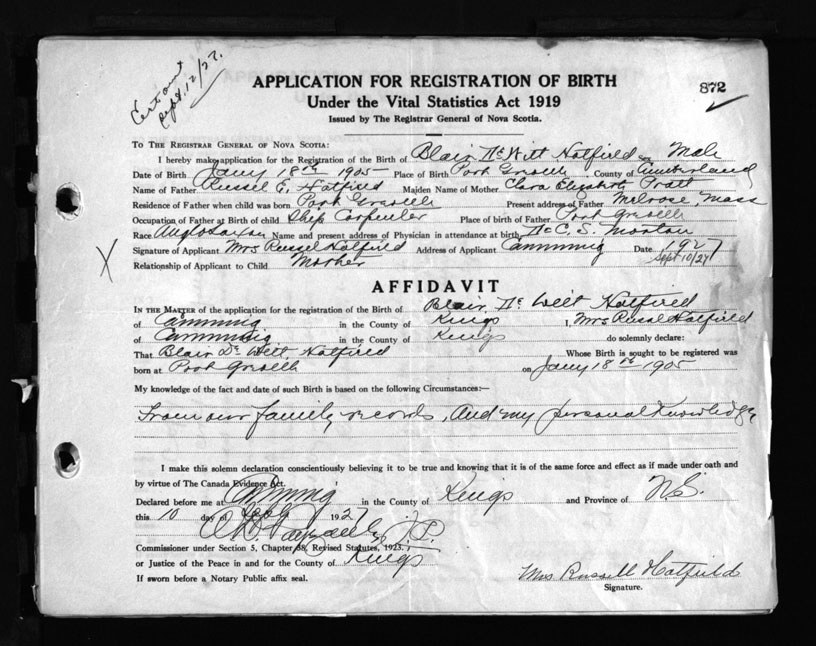 Cert out
Sept. 12/27.
APPLICATION FOR REGISTRATION OF BIRTH
872
Under the Vital Statistics Act 1919
Issued by The Registrar General of Nova Scotia.
TO THE REGISTRAR GENERAL OF NOVA SCOTIA:
I hereby make application for the Registration of the Birth of Blair De Witt Hatfield Male
Date of Birth Jany 18th 1905 Place of Birth Port Greville County of Cumberland
Name of Father Russel E. Hatfield Maiden Name of Mother Clara Elizabeth Pratt
Residence of Father when child was born Port Greville Present address of Father Melrose, Mass
Occupation of Father at Birth of child Ship Carpenter Place of birth of Father Port Greville
Race Anglo Saxon Name and present address of Physician in attendance at birth
Signature of Applicant Mrs Russel Hatfield Address of Applicant Canning Date 1927
Sept 10/27
Relationship of Applicant to Child Mother
AFFIDAVIT
IN THE MATTER of the application for the registration of the Birth of Blair De Witt Hatfield
of Canning in the County of Kings I, Mrs Russel Hatfield
of Canning in the County of Kings do solemnly declare:
That Blair De Witt Hatfield Whose Birth is sought to be registered was
born at Port Greville on Jany 18th 1905
My knowledge of the fact and date of such Birth is based on the following Circumstances:—
From our family records, and my personal knowledge
I make this solemn declaration conscientiously believing it to be true and knowing that it is of the same force and effect as if made under oath and
by virtue of The Canada Evidence Act.
Declared before me at Canning in the County of Kings and Province of N.S.
this 10 day of Sept 1927
J.P.
Commissioner under Section 5, Chapter 38, Revised Statutes, 1923.
or Justice of the Peace in and for the County of Kings
If sworn before a Notary Public affix seal.
Mrs Russell Hatfield
Signature.